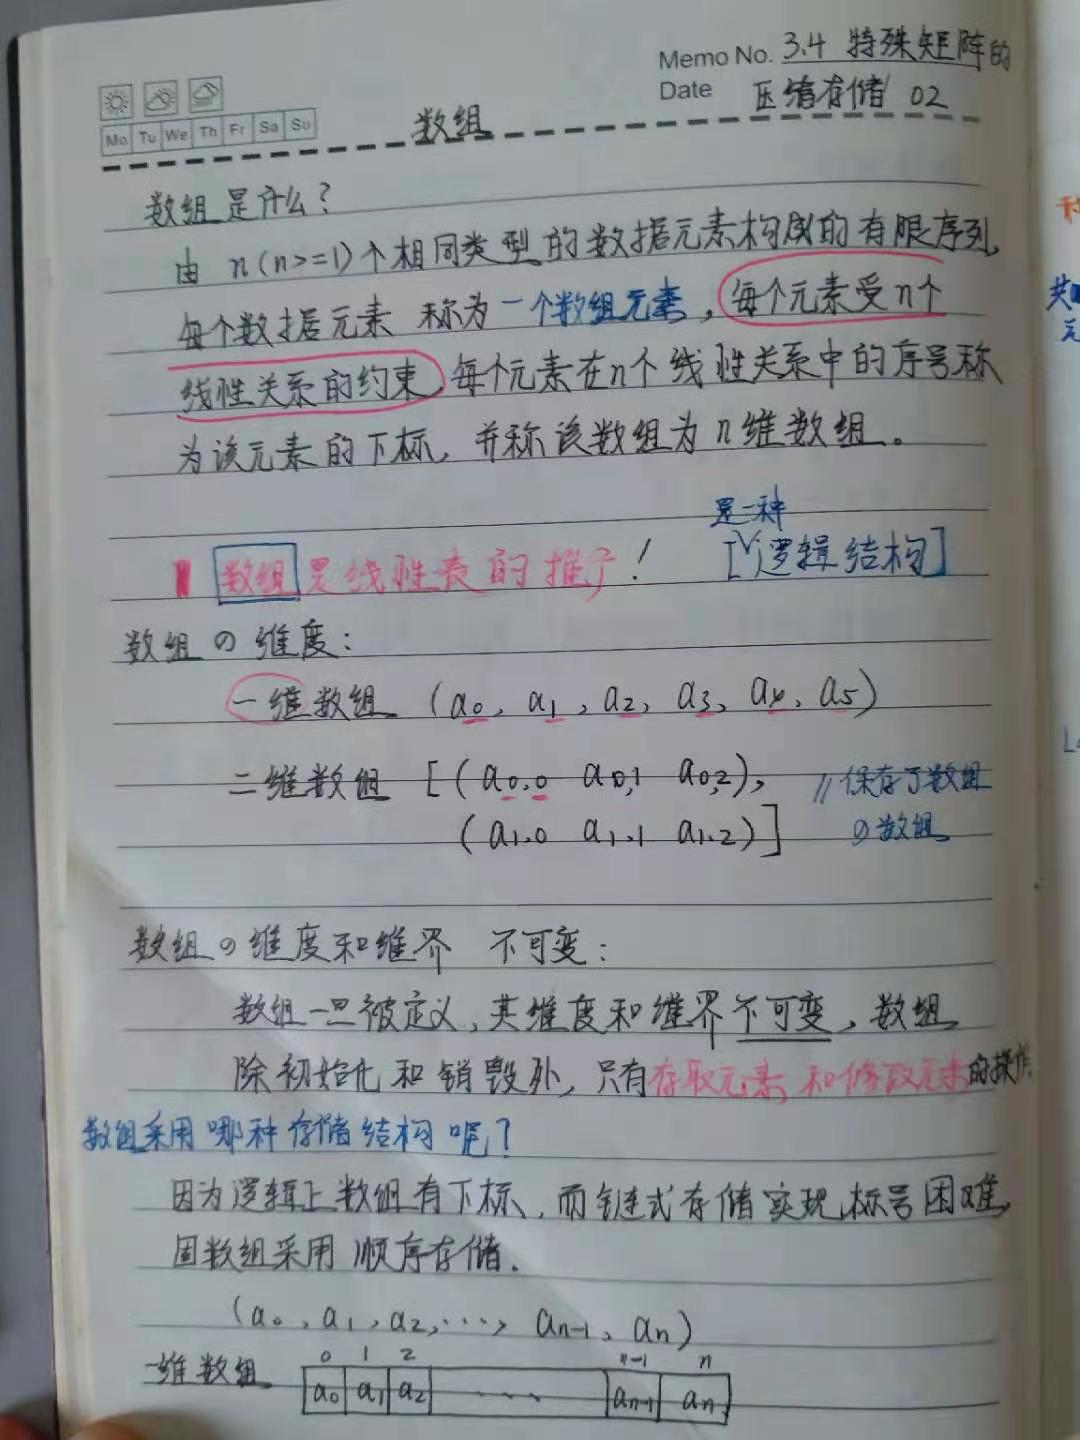 Memo No. 3.4 特殊矩阵的
Date 压缩存储 02
Mo Tu We Th Fr Sa Su
数组
数组是什么?
由 n(n>=1)个相同类型的数据元素构成的有限序列,
每个数据元素 称为一个数组元素,每个元素受n个
线性关系的约束,每个元素在n个线性关系中的序号称
为该元素的下标,并称该数组为n维数组。
是一种
数组是线性表的推广! [逻辑结构]
数组の维度:
一维数组 (a0, a1, a2, a3, a4, a5)
二维数组 [(a0,0 a0,1 a0,2), //保存了数组
(a1,0 a1,1 a1,2)] の数组
数组の维度和维界 不可变:
数组一旦被定义,其维度和维界不可变,数组
除初始化和销毁外,只有存取元素和修改元素的操作.
数组采用哪种存储结构呢?
因为逻辑上数组有下标,而链式存储实现标号困难,
固数组采用 顺序存储.
(a0, a1, a2, ..., an-1, an)
0 1 2 n-1 n
一维数组 a0 a1 a2 .... an-1 an